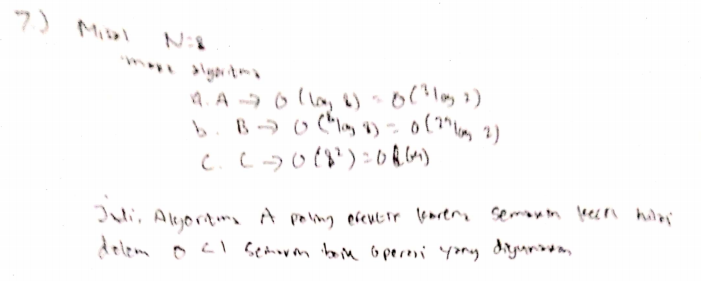 7.) Misal N=8
maka algoritma
a. A → O (log 8) = O(3 log 2)
b. B → O (n log 8) = O(3n log 2)
c. C → O(8²) = O(64)
Jadi, Algoritma A paling efektif karena semakin kecil nilai
dalam O <1 semakin baik operasi yang digunakan